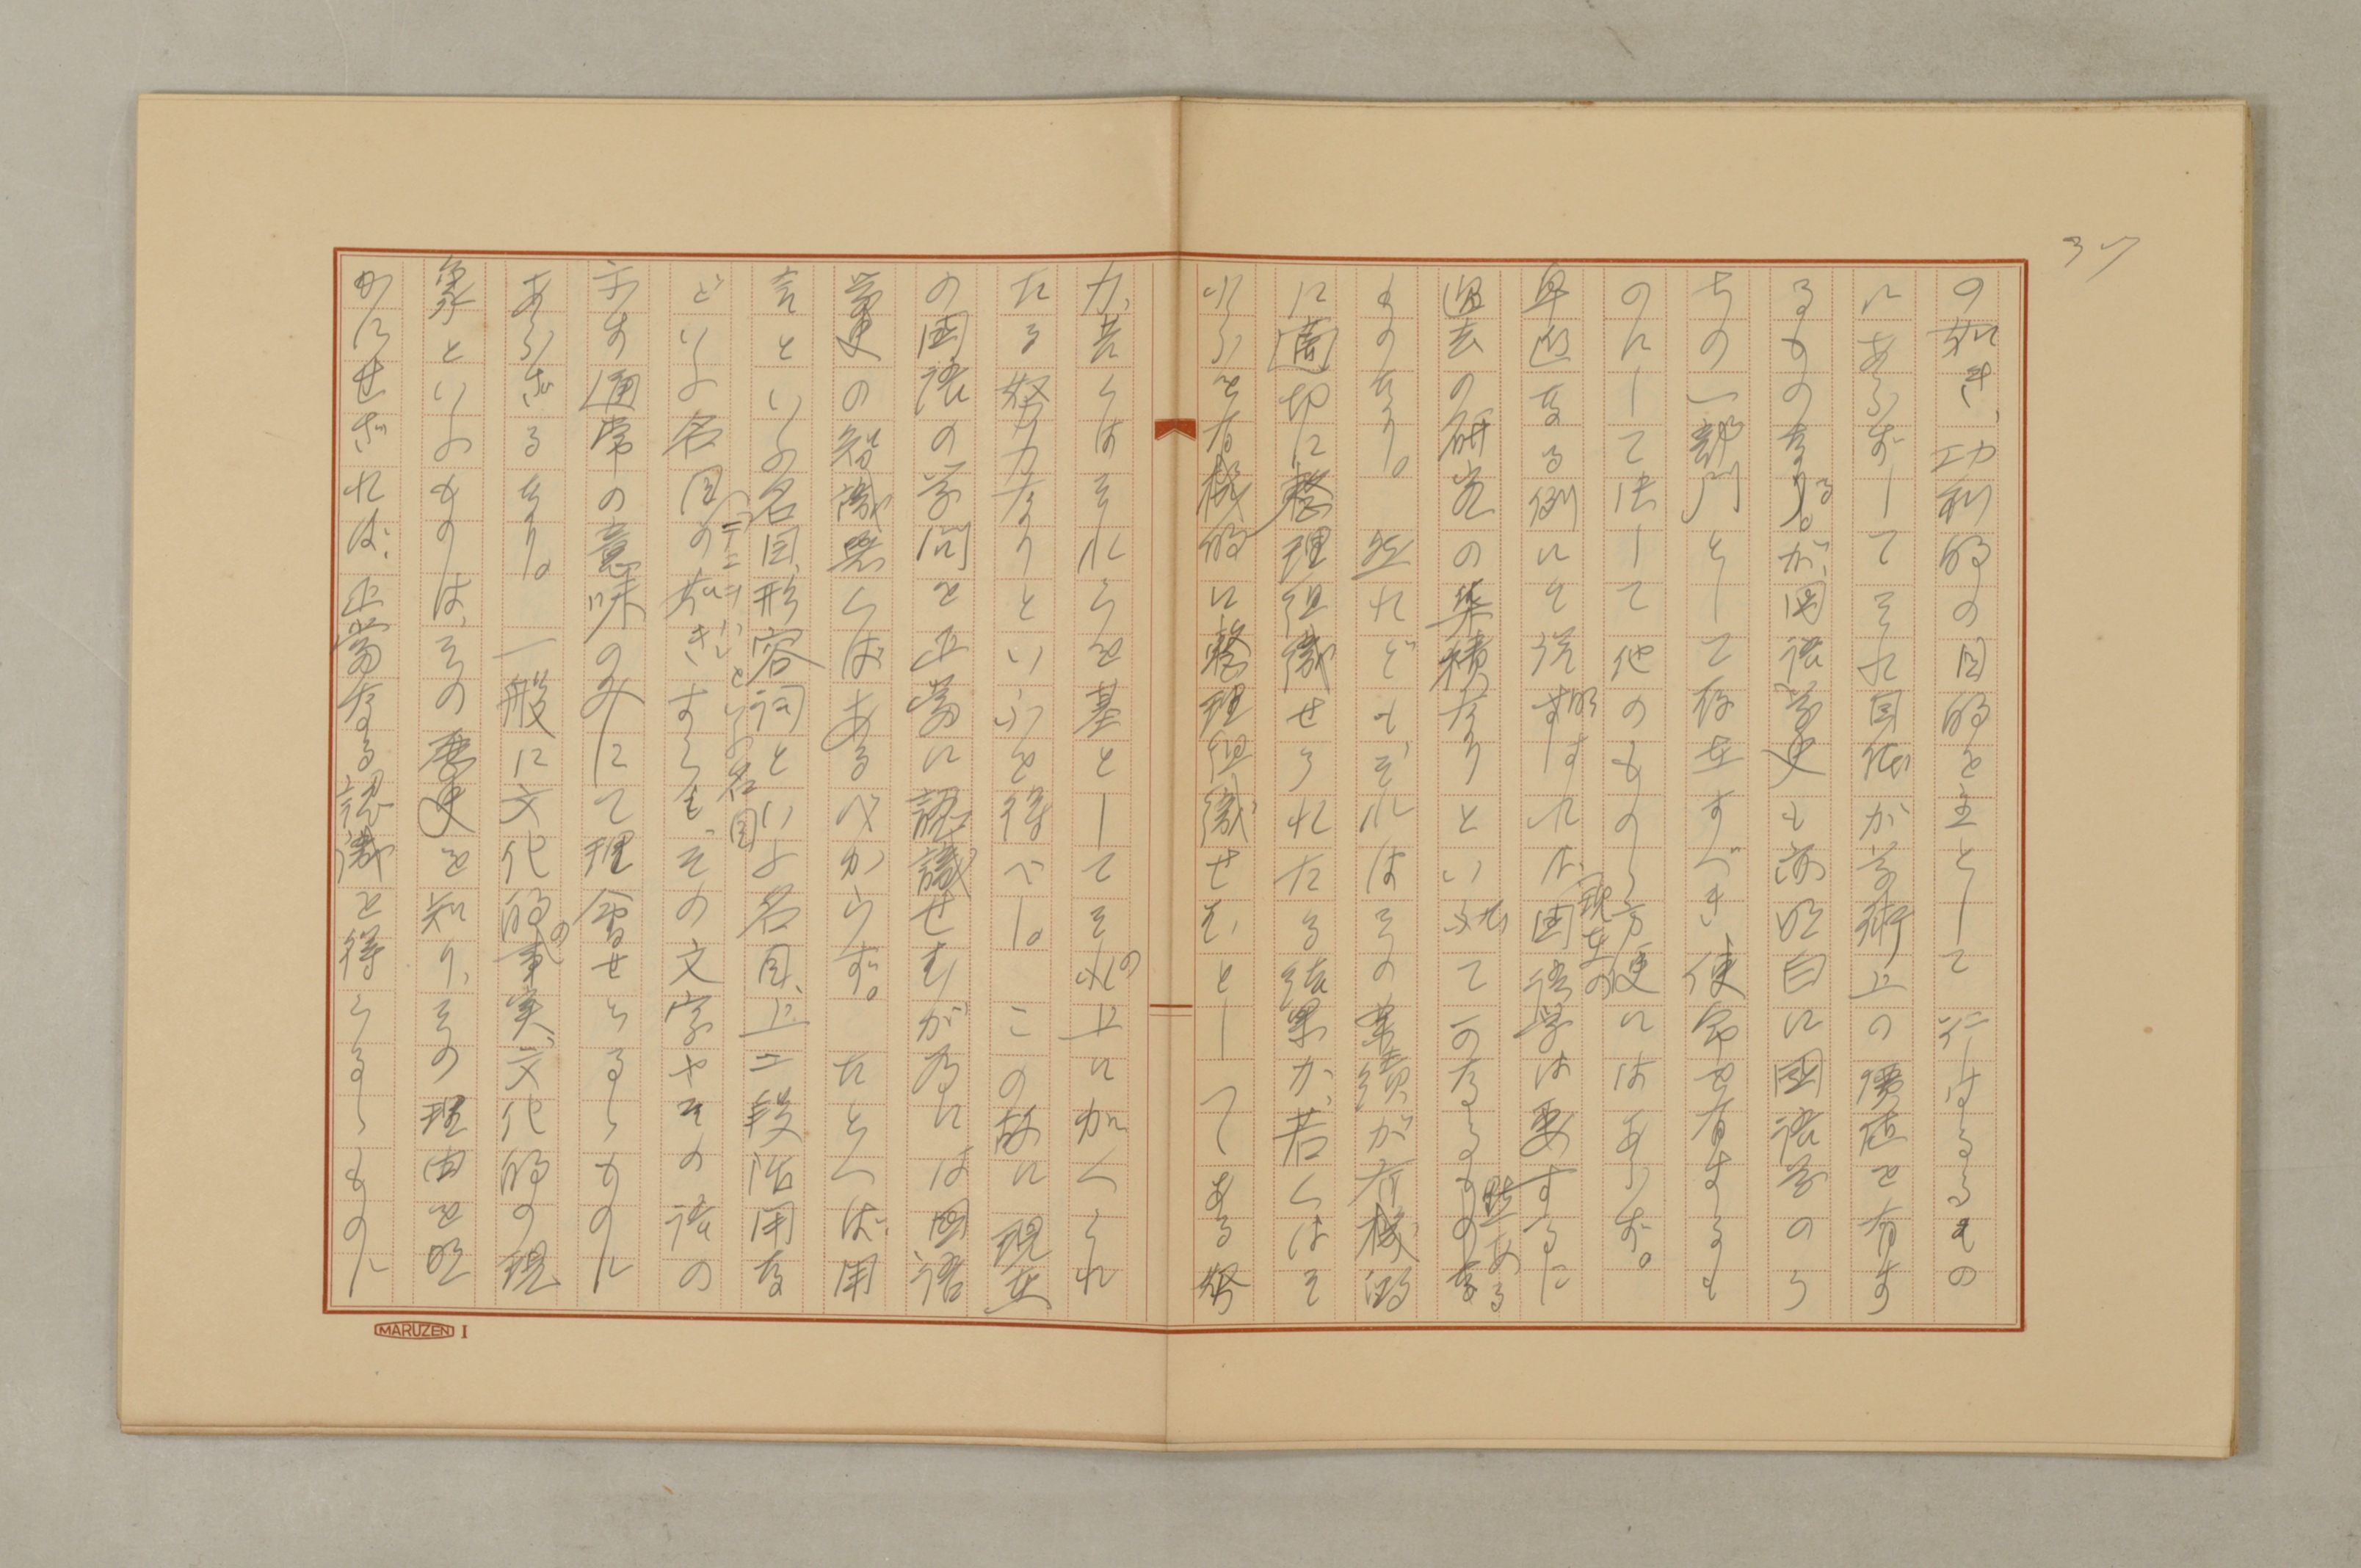 37
の如き、功利的の目的を主として行はるるもの
にあらずしてそれ自体が学術上の価値を有す
るものなるが、国語学史も亦明白に国語学のう
ちの一部門として存在すべき使命を有するも
のにして決して他のものゝ方便にはあらず。
卑近なる例にて説明すれば、現在の国語学は要するに
過去の研究の集積なりといひて可なる点あるものな
ものなり。然れどもそれはその業績が有機的
に適切に整理組織せられたる結果か、若くはそ
れらを有機的に整理組織せむとしてある努
力、若くはそれらを基としてその上にがくくれ
たる努力なりといふを得べし。この故に現在
の国語の学問を正当に認識せむが為には国語
学史の知識無くばあるべからず。たとへば、用
言といふ名目、形容詞といふ名目、上二段活用な
どいふ名目
(テニヲハ)といふ名目
の如きすらも、その文字やその語の
示す通常の意味のみにて理会せらるゝものに
あらざるなり。一般に文化的の事実、文化的の現
象といふものは、その歴史を知り、その理由を明
かにせざれば、正当なる認識を得らるゝものに
MARUZEN I